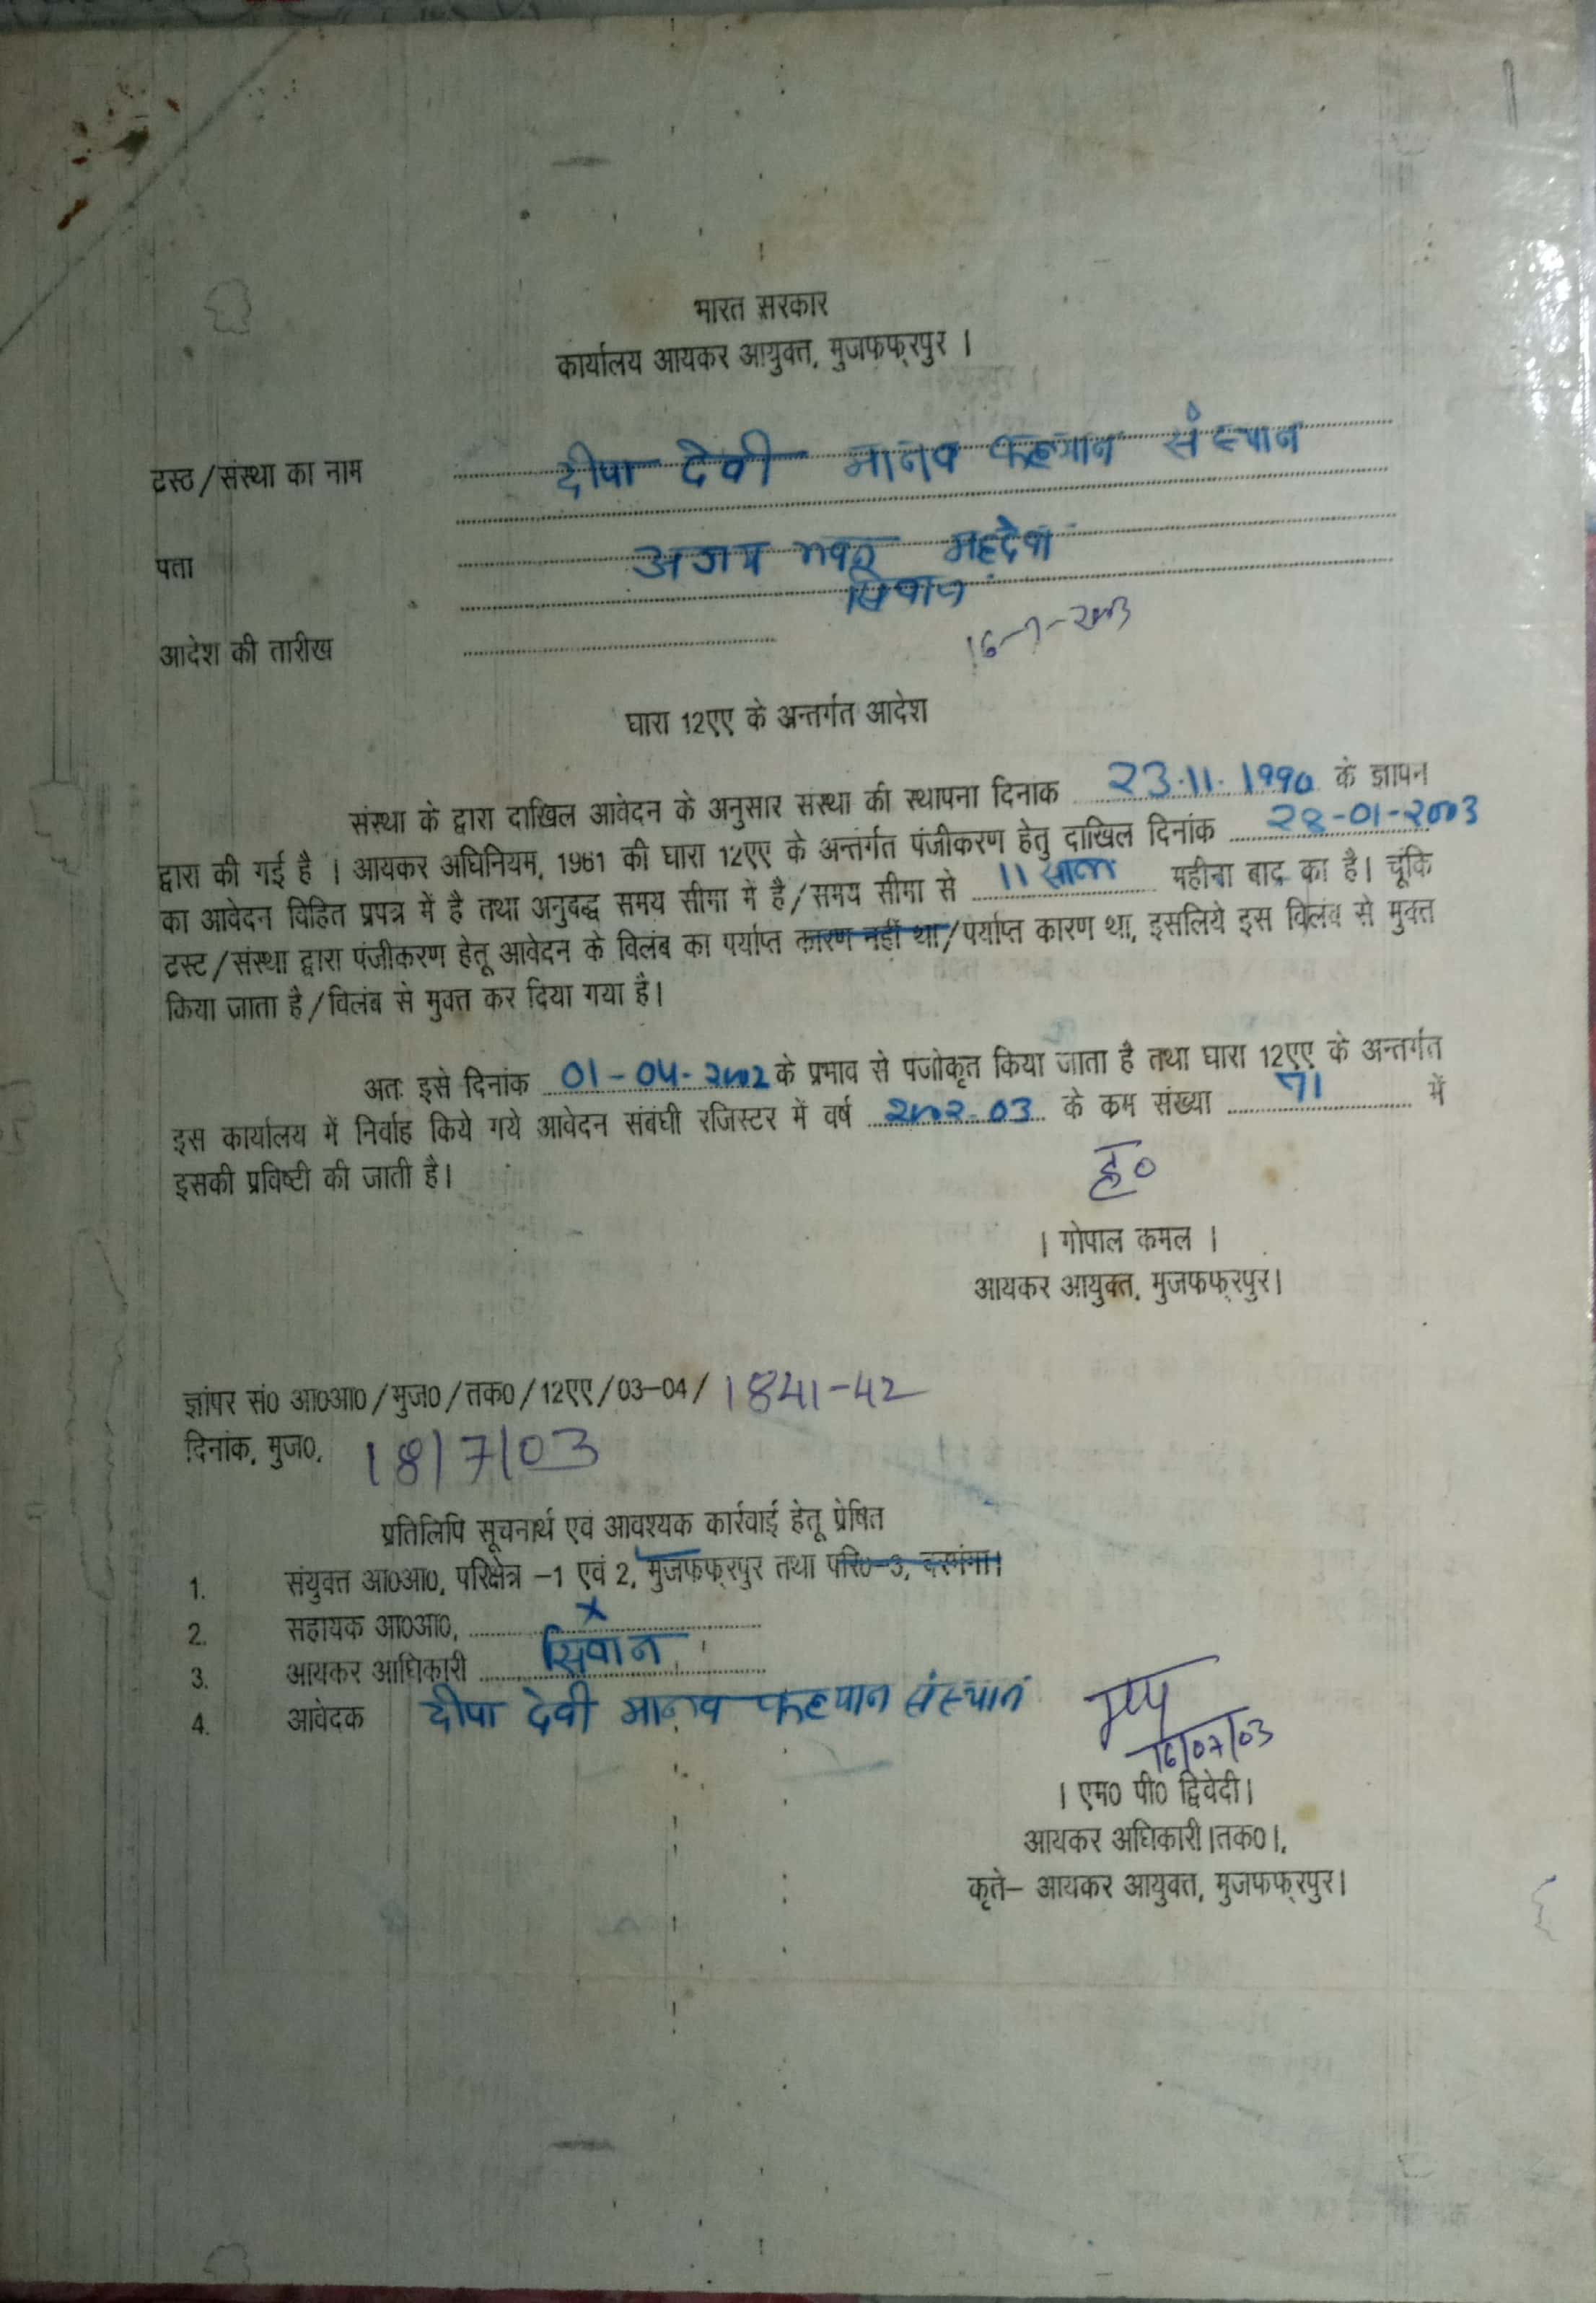 भारत सरकार
कार्यालय आयकर आयुक्त, मुजफफ्रपुर ।
ट्रस्ट/संस्था का नाम दीपा देवी मानव कल्यान संस्थान
पता अजय नगर महदेवा
सिवान
आदेश की तारीख 16-7-2003
धारा 12एए के अन्तर्गत आदेश
संस्था के द्वारा दाखिल आवेदन के अनुसार संस्था की स्थापना दिनाक 23.11.1990 के ज्ञापन
द्वारा की गई है । आयकर अधिनियम, 1961 की धारा 12एए के अन्तर्गत पंजीकरण हेतु दाखिल दिनांक 28-01-2003
का आवेदन विहित प्रपत्र में है तथा अनुदद्ध समय सीमा में है/समय सीमा से 11 साल महीना बाद का है। चूंकि
ट्रस्ट/संस्था द्वारा पंजीकरण हेतू आवेदन के विलंब का पर्याप्त कारण नहीं था/पर्याप्त कारण था, इसलिये इस विलंब से मुक्त
किया जाता है/विलंब से मुक्त कर दिया गया है।
अतः इसे दिनांक 01-04-2002 के प्रभाव से पंजीकृत किया जाता है तथा धारा 12एए के अन्तर्गत
इस कार्यालय में निर्वाह किये गये आवेदन संबंधी रजिस्टर में वर्ष 2002-03 के कम संख्या 71 में
इसकी प्रविष्टी की जाती है।
ह०
। गोपाल कमल ।
आयकर आयुक्त, मुजफफ्रपुर।
ज्ञांपर सं0 आ0आ0/मुज0/तक0/12एए/03-04/ 1841-42
दिनांक, मुज0, 18/7/03
प्रतिलिपि सूचनार्थ एवं आवश्यक कार्रवाई हेतू प्रेषित
1. संयुक्त आ0आ0, परिक्षेत्र -1 एवं 2, मुजफफ्रपुर तथा परि0-3, दरभंगा।
2. सहायक आ0आ0, x
3. आयकर आधिकारी सिवान
4. आवेदक दीपा देवी मानव कल्यान संस्थान
16/07/03
। एम0 पी0 द्विवेदी।
आयकर अधिकारी।तक0।,
कृते- आयकर आयुक्त, मुजफफ्रपुर।